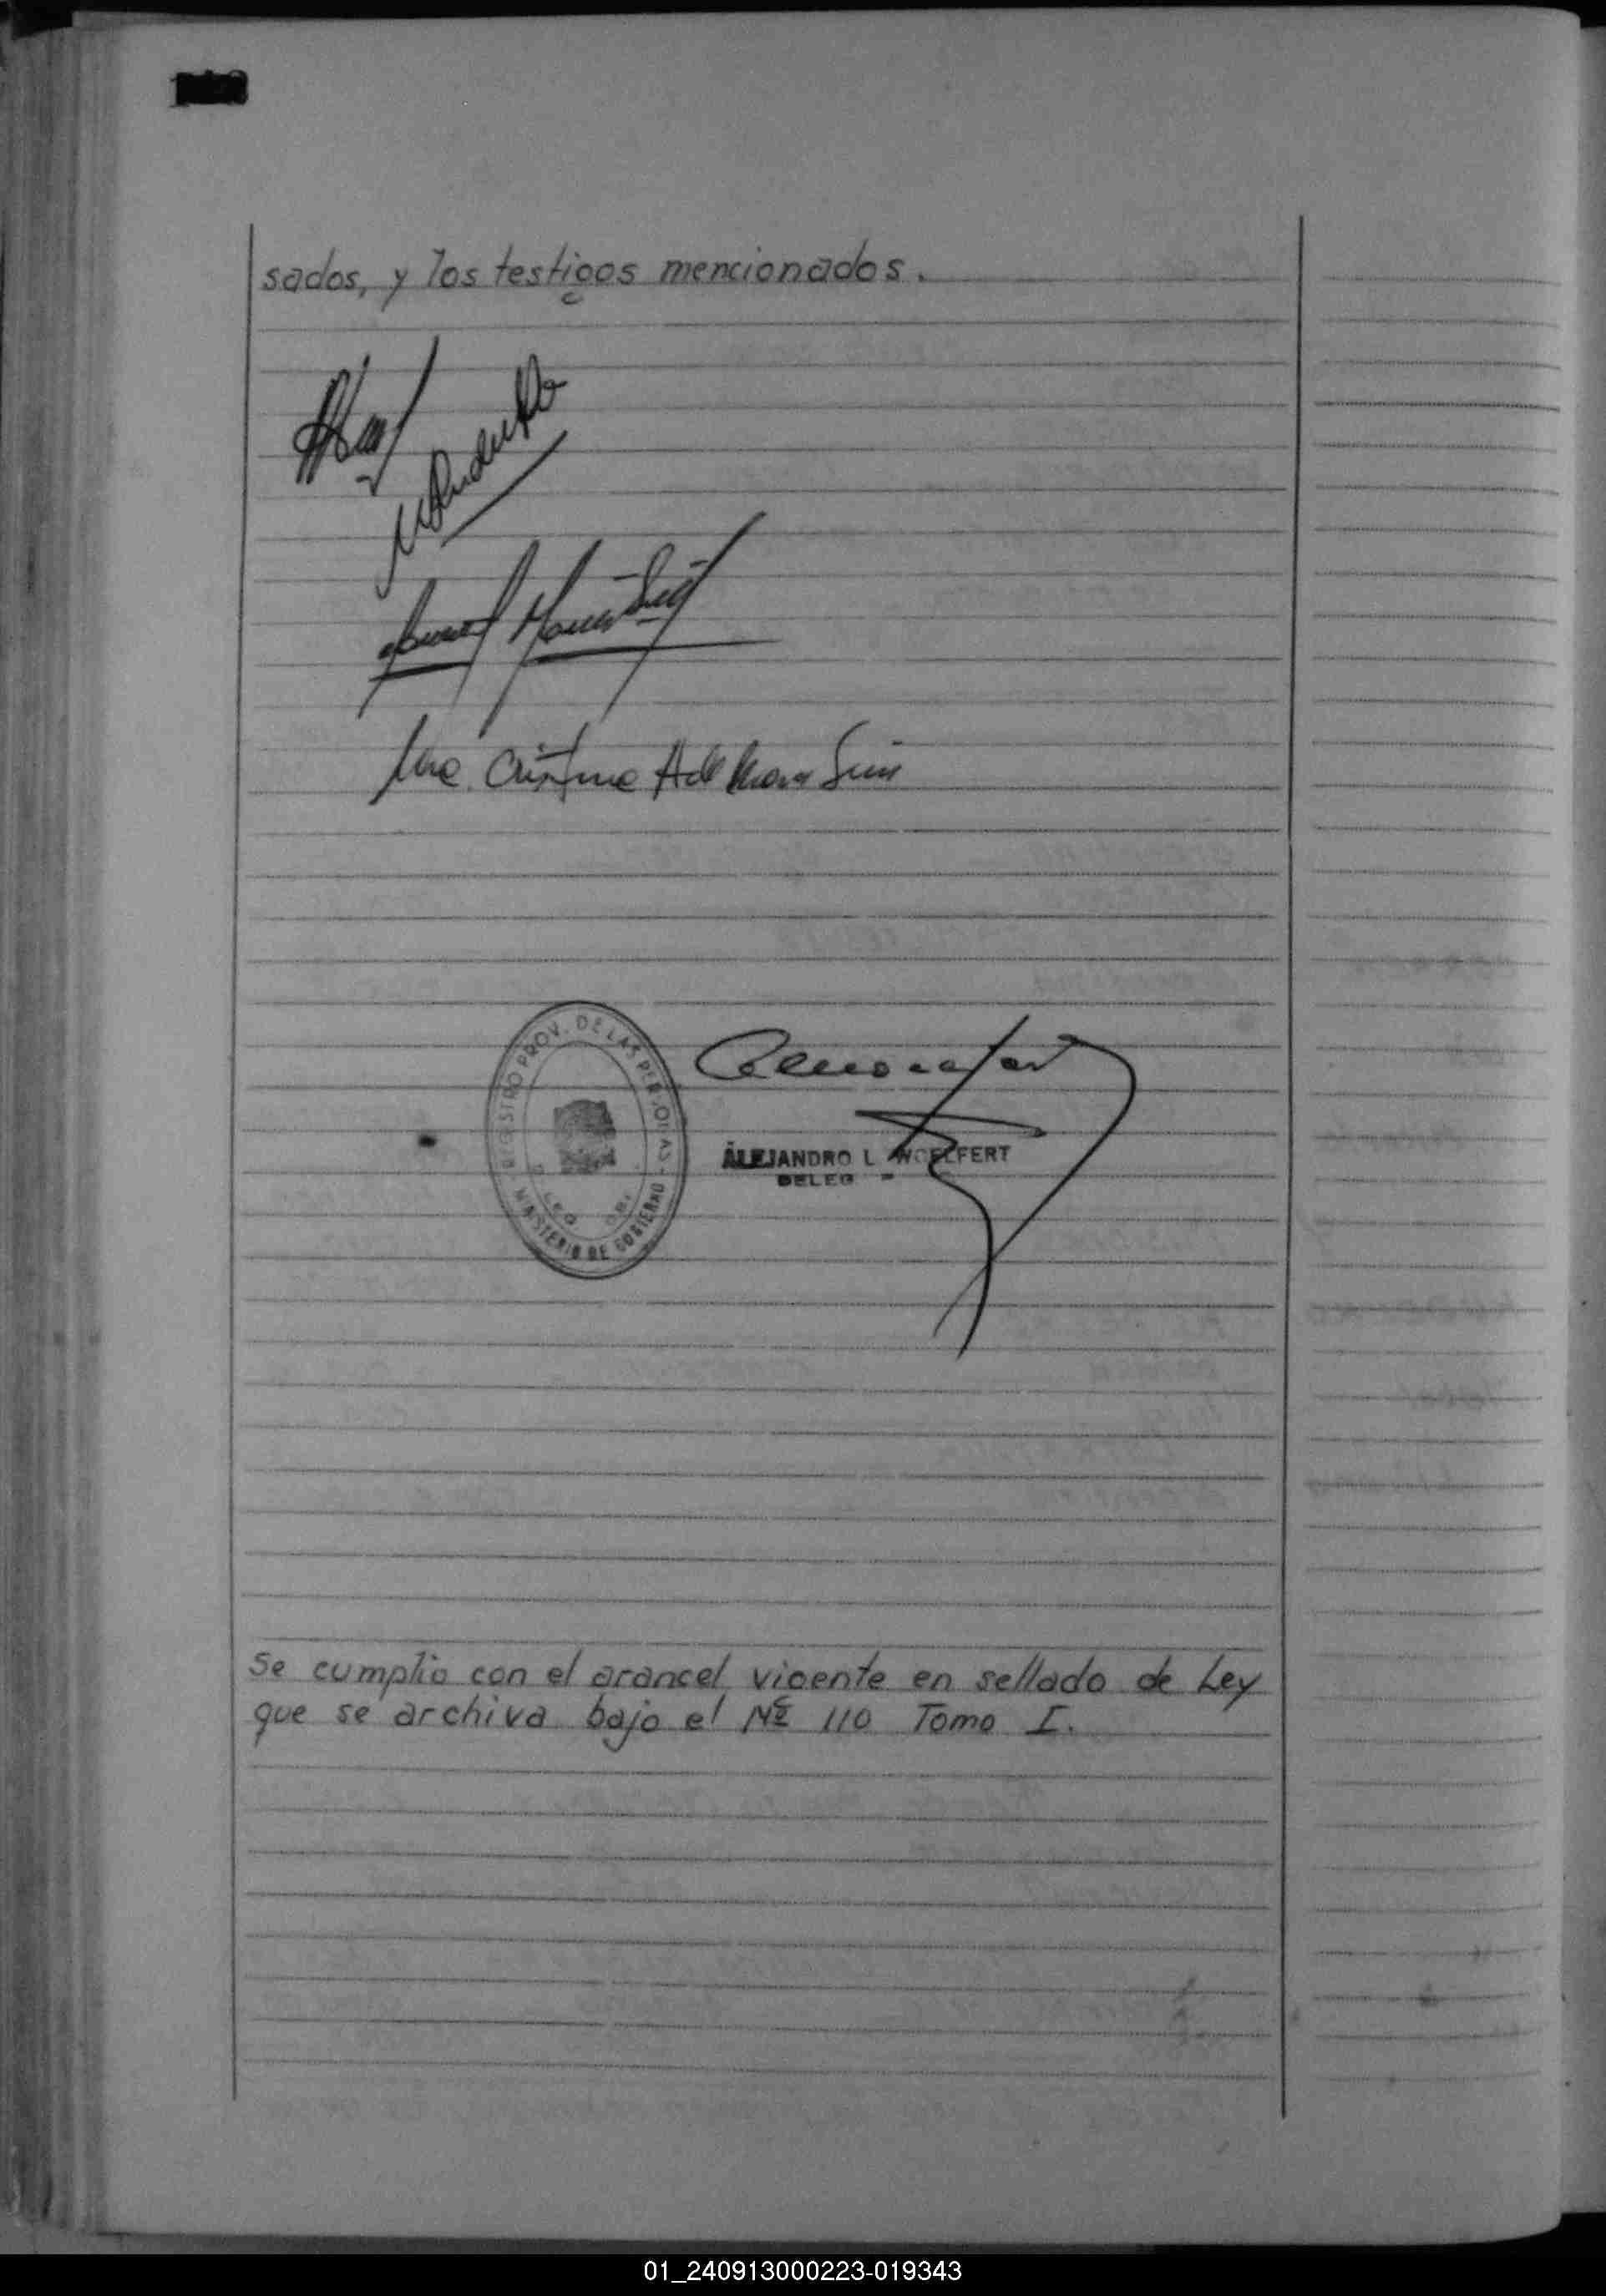 sados, y los testigos mencionados.
Ma. Cristina
REGISTRO PROV. DE LAS PERSONAS
MINISTERIO DE GOBIERNO
ALEJANDRO L WOELFERT
DELEG
Se cumplio con el arancel vigente en sellado de Ley
que se archiva bajo el Nº 110 Tomo I.
01_240913000223-019343